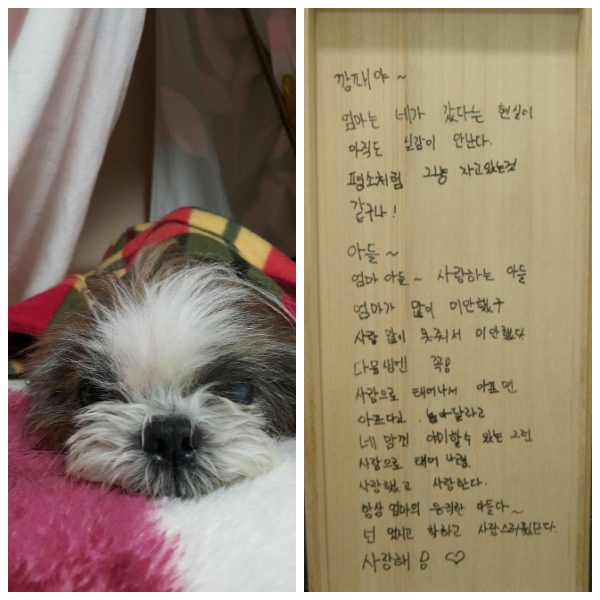 깡패야~
엄마는 네가 갔다는 현실이
아직도 실감이 안난다.
평소처럼 그냥 자고있는것
같구나!
아들~
엄마 아들~ 사랑하는 아들
엄마가 많이 미안했구
사랑 많이 못줘서 미안했다
다음생엔 꼭
사람으로 태어나서 아프면
아프다고 달라고
네 맘껏 얘기할수 있는 그런
사람으로 태어나렴.
사랑했고 사랑한다.
항상 엄마의 아들다~
넌 멋지고 착하고 사랑스러웠단다.
사랑해 ♡